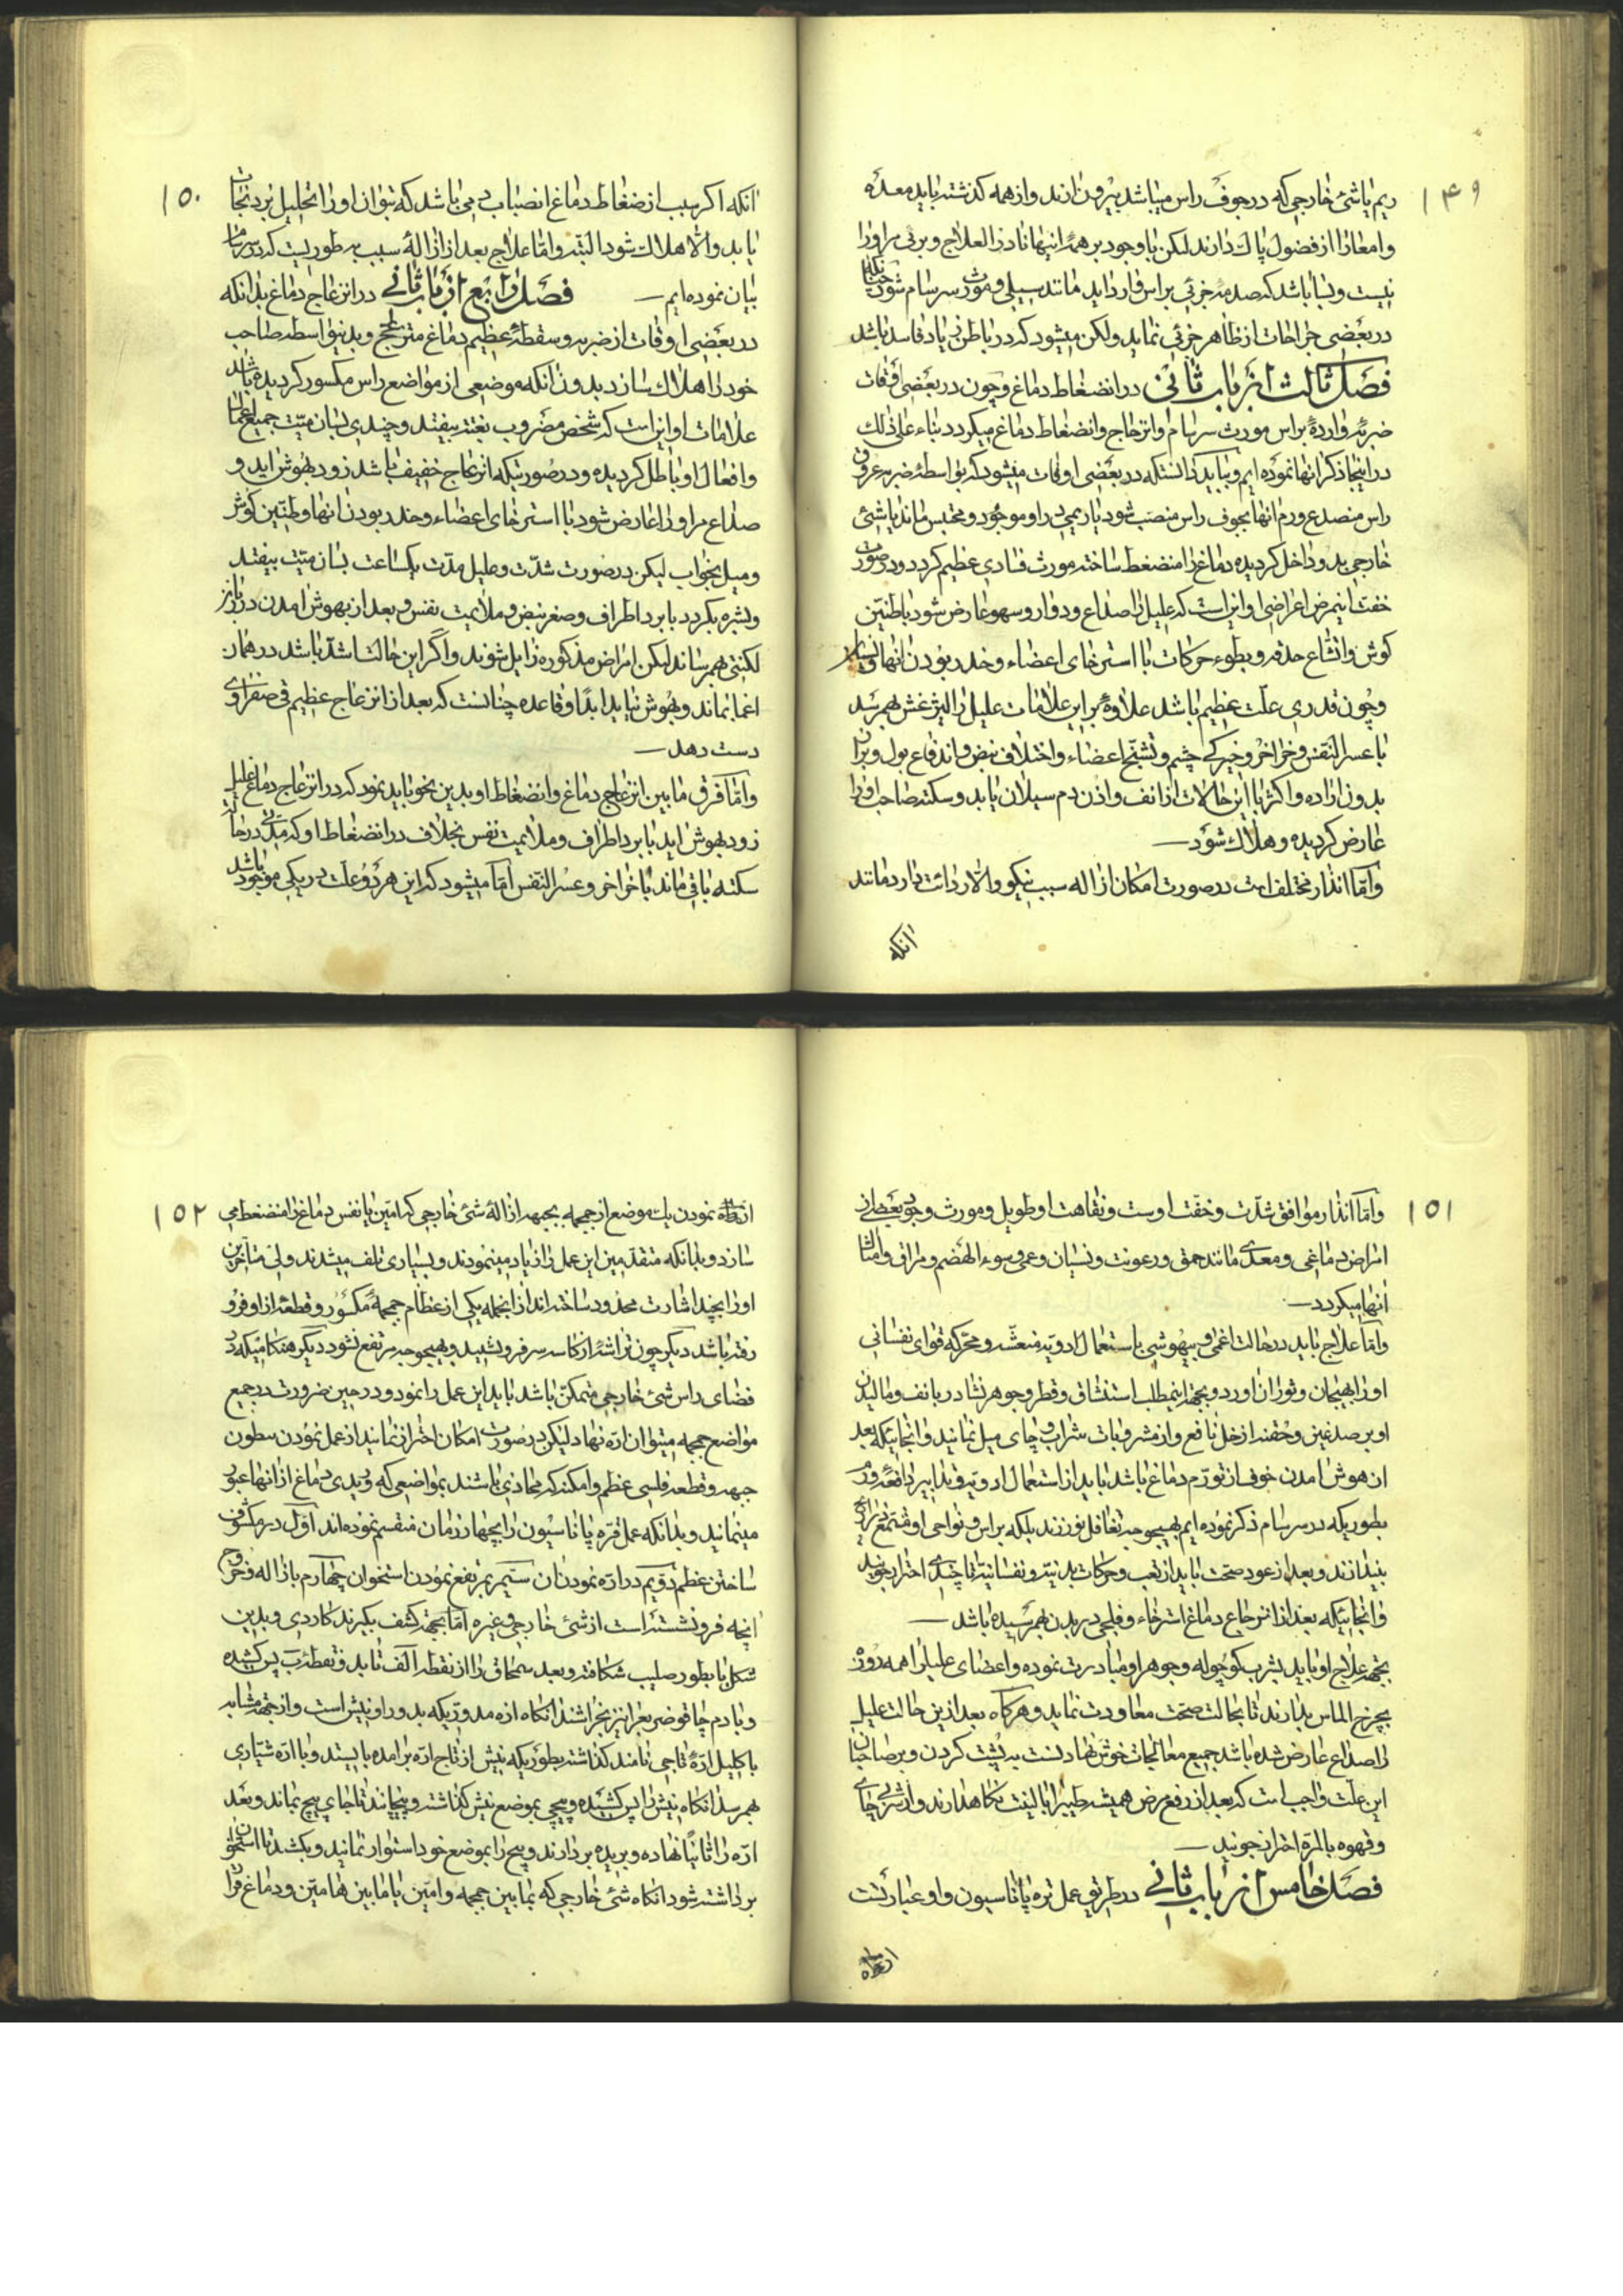 ۱۴۹
ریم یا شئ خارجی که در جوف راس میباشد بیرون ارند و از همه کذشته باید معده
و امعا را از فضول پاک دارند لیکن با وجود بر همه اینها نادر العلاج و برئی مر او را
نیست و بسا باشد که صدمه جزئی براس وارد اید مانند سیلی و مورث سرسام شود چنانکه
در بعضی جراحات از ظاهر جزئی نماید ولکن میشود که در باطن زیاد فاسد باشد
فصل ثالث از باب ثانی در انضغاط دماغ و چون در بعضی اوقات
ضربهٔ واردهٔ براس مورث سرسام و انزعاج و انضغاط دماغ میکردد بناء علی ذلک
در اینجا ذکر انها نموده ایم و بباید دانست که در بعضی اوقات میشود که بواسطهٔ ضربه عروق
راس منصدع و دم انها بجوف راس منصب شود یا ریمی در او موجود و محتبس ماند یا شئ
خارجی بدو داخل کردیده دماغ را منضغط ساخته مورث فسادی عظیم کردد و در صورت
خفت اینمرض اعراض او اینست که علیل را صداع و دوار و سهو عارض شود با طنین
کوش و اتساع حدقه و بطوء حرکات با استرخای اعضاء و خدر بودن انها
و چون قدری علت عظیم باشد علاوهٔ بر این علامات علیل را لیثرغش بهم رسد
با عسر النفس و خراخر و خیرکی چشم و تشنج اعضاء و اختلاف نبض و اندفاع بول و براز
بدون اراده و اکثر با این حالات از انف و اذن دم سیلان یابد و سکته صاحب او را
عارض کردیده و هلاک شود
و امّا انذار مختلف است در صورت امکان ازاله سبب نیکو و الا ردائت دارد مانند
انکه
۱۵۰
انکه اکر سبب از ضغاط دماغ انصباب دمی باشد که بتوان او را تحلیل برد نجات
یابد و الا هلاک شود البته و امّا علاج بعد از ازالهٔ سبب بطوریست که در سرسام
بیان نموده ایم فصل رابع از باب ثانی در انزعاج دماغ بدانکه
در بعضی اوقات از ضربه و سقطهٔ عظیم دماغ منزعج و بدینواسطه صاحب
خود را هلاک سازد بدون انکه موضعی از مواضع راس مکسور کردیده باشد
علامات او اینست که شخص مضروب بغتة بیفتد و چندی بسان میّت جمیع اعمال
و افعال او باطل کردیده و در صورتیکه انزعاج خفیف باشد زود بهوش اید و
صداع مر او را عارض شود با استرخای اعضاء و خدر بودن انها و طنین کوش
و میل بخواب لیکن در صورت شدّت و علیل مدّت یکساعت بسان میّت بیفتد
و بشره بکردد با برد اطراف و صغر نبض و ملایمت نفس و بعد از بهوش امدن در زبان
لکنتی بهم رساند لیکن امراض مذکوره زایل شوند و اکر این حالت اشد باشد در همان
اغما بماند و بهوش نیاید ابدًا و قاعده چنانست که بعد از انزعاج عظیم قی صفراوی
دست دهد
و امّا فرق مابین انزعاج دماغ و انضغاط او بدین نحو باید نمود که در انزعاج دماغ علیل
زود بهوش اید با برد اطراف و ملایمت نفس بخلاف در انضغاط او که مدتی در حالت
سکته باقی ماند با خراخر و عسر النفس امّا میشود که این هر دو علت در یکی موجود باشد
۱۵۱
و امّا انذار موافق شدّت و خفّت اوست و نقاهت او طویل و مورث وجود بعضی از
امراض دماغی و معدی مانند حمق و رعونت و نسیان و عمی و سوء الهضم و مراق و امثال
انها میکردد
و امّا علاج باید در حالت اغمی و بیهوشی باستعمال ادویه منعشه و محرّکه قوای نفسانی
او را بهیجان و ثوران اورد و بجهة اینمطلب استنشاق و قطر و جوهر نشادر بانف و مالیدن
او بر صدغین و حقنه از خل نافع و از مشروبات شراب و چای میل نمایند و انجائیکه بعد
از هوش امدن خوف از تورّم دماغ باشد باید از استعمال ادویه و تدابیر دافعهٔ ورم
بطوریکه در سرسام ذکر نموده ایم بهیچوجه تغافل نورزند بلکه براس و نواحی او
بیندازند و بعد از عود صحّت باید از تعب و حرکات بدنیّه و نفسانیّه تا چندی احتراز جویند
و انجائیکه بعد از انزعاج دماغ استرخاء و فلجی در بدن بهم رسیده باشد
بجهة علاج او باید بشرب کوچوله و جوهر او مبادرت نموده و اعضای علیل را همه روزه
بچرخ الماس بدارند تا بحالت صحّت معاودت نماید و هرکاه بعد از این حالت علیل
را صداع عارض شده باشد جمیع معالجات خوش نهادنست به پشت کردن و بر صاحبان
این علّت واجب است که بعد از رفع مرض همیشه طبیعة را با لینت نکاهدارند و از شرب چای
و قهوه بالمرّة احتراز جویند
فصل خامس از باب ثانی در طریق عمل تره پاناسیون و او عبارتست
از قطاره
۱۵۲
نمودن یک موضع از جمجمه بجهة ازالهٔ شئ خارجی که امّین یا نفس دماغ را منضغط می
سازد و بدانکه متقدّمین این عمل را زیاد مینمودند و بسیاری تلف میشدند ولی متأخرین
او را بچند اشارت محدود ساخته اند از انجمله یکی از عظام جمجمه مکسور و قطعهٔ از او فرو
رفته باشد دیکر چون تراشهٔ از کاسه سر فرو نشیند و بهیچوجه مرتفع نشود دیکر هنکامیکه در
فضای راس شئ خارجی متمکّن باشد باید این عمل را نمود و در حین ضرورت در جمیع
مواضع جمجمه میتوان ارّه نهاد لیکن در صورت امکان احتراز نمایند از عمل نمودن بطون
جبهه و قطعه فلسی عظم و امکنهٔ که محاذی باشند بمواضعی که وریدی دماغ از انها عبور
مینمایند و بدانکه عمل تره پاناسیون را بچهار زمان منقسم نموده اند اوّل در مکشوف
ساختن عظم دوّیم در ارّه نمودن ان سیّم مرتفع نمودن استخوان چهارم بازاله و خروج
انچه فرو نشسته است از شئ خارجی و غیره امّا بجهة کشف بکیرند کاردی و بدین
شکل یا بطور صلیب شکافته و بعد سمحاق را از نقطهٔ الف تا بد و نقطهٔ ب پس کشیده
و با دم چاقو ضریعرا نیز بخراشند انکاه ارّه مدوّریکه بدور او نیش است و از جهة مشابه
باکلیل ارّهٔ تاجی نامند کذاشته بطوریکه نیش از تاج ارّه برامده بایستد و با ارّه شیاری
بهم رسد انکاه نیش را پس کشیده و پیچی بموضع نیش کذاشته و بپیچانند تا جای پیچ بماند و بعد
ارّه را ثانیًا نهاده و بریده بردارند و پیچ را بموضع خود استوار نمایند و بکشند تا استخوان
برداشته شود انکاه شئ خارجی که بمابین جمجمه و امّین یا مابین هامّین و دماغ قرار